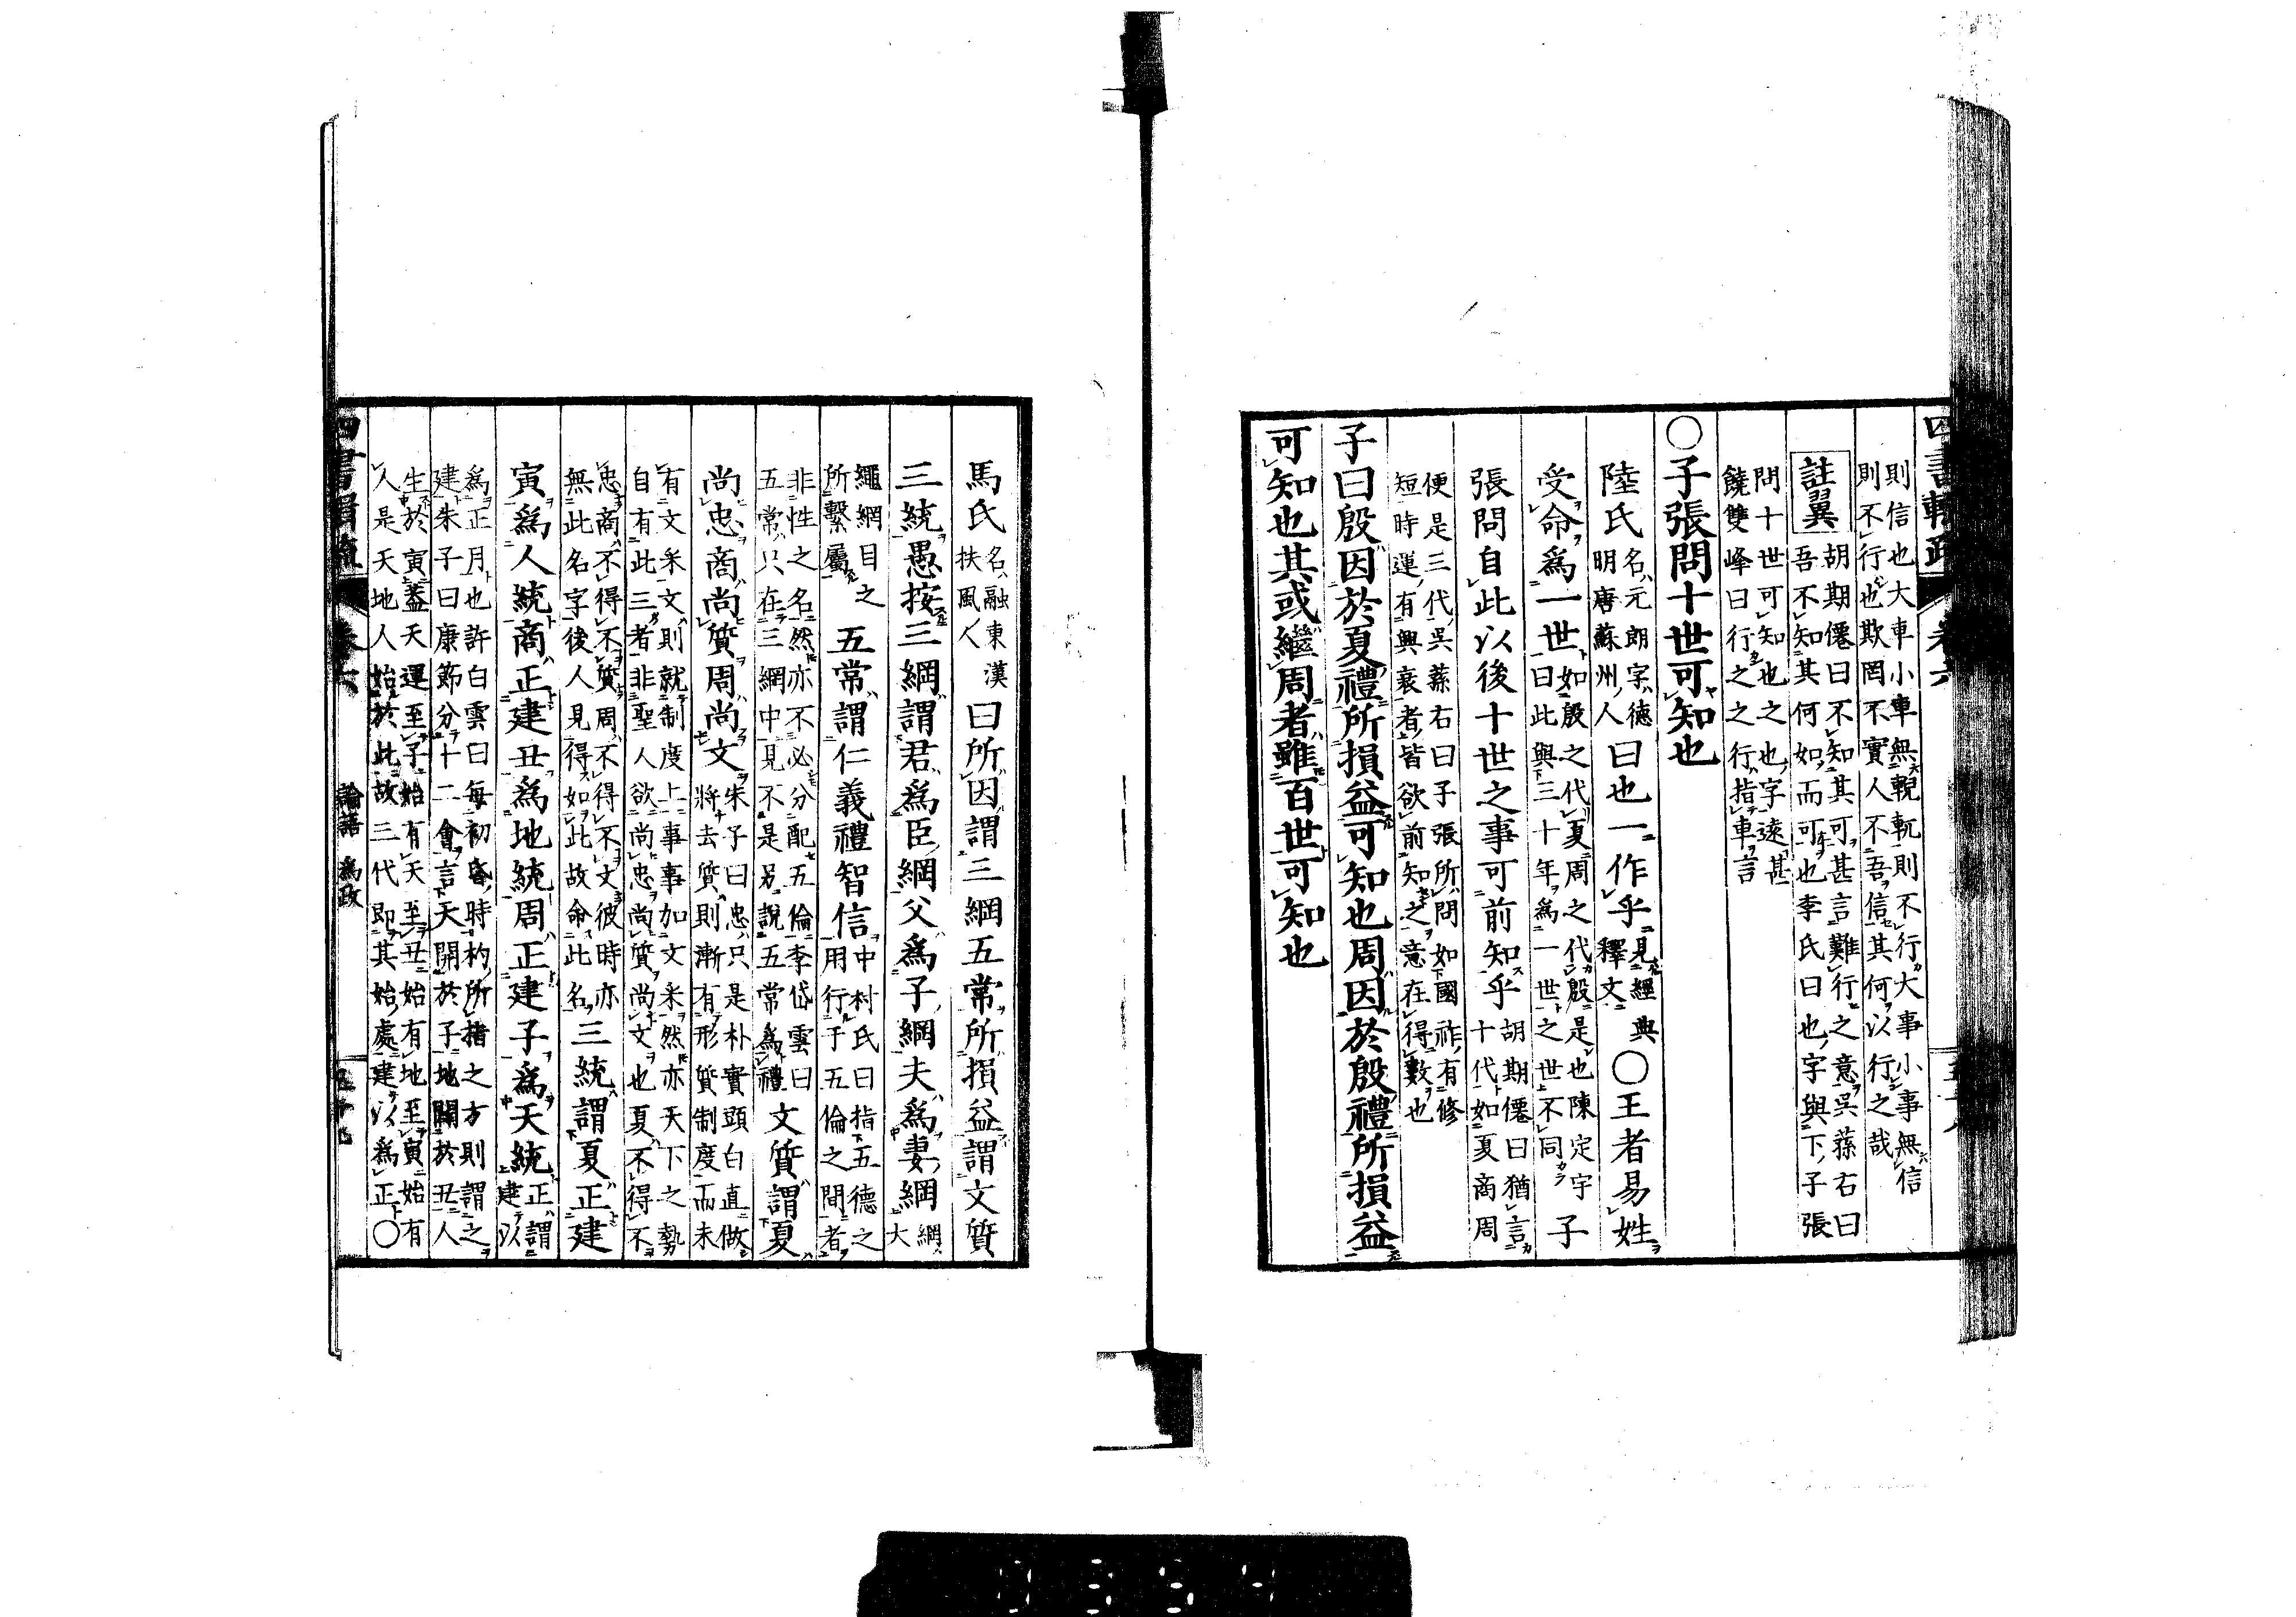 四書輯疏 卷六
則信也大車小車無輗軏則不行大事小事無信
則不行也欺罔不實人不吾信其何以行之哉
註翼
胡期僊曰不知其可甚言難行之意吳蓀右曰
吾不知其何如而可也李氏曰也字與下子張
問十世可知也之也字遠甚
饒雙峰曰行之之行指車言
○子張問十世可知也
陸氏
名元朗字德
明唐蘇州人
曰也一作乎
見經典
釋文
○王者易姓
受命爲一世
如殷之代夏周之代殷是也陳定宇
曰此與三十年爲一世之世不同
子
張問自此以後十世之事可前知乎
胡期僊曰猶言
十代如夏商周
便是三代吳蓀右曰子張所問如國祚有修
短時運有興衰者皆欲前知之意在得數也
子曰殷因於夏禮所損益可知也周因於殷禮所損益
可知也其或繼周者雖百世可知也
馬氏
名融東漢
扶風人
曰所因謂三綱五常所損益謂文質
三統愚按三綱謂君爲臣綱父爲子綱夫爲妻綱
綱
大
繩網目之
所繫屬
五常謂仁義禮智信
中村氏曰指五德之
用行于五倫之間者
非性之名然亦不必分配五倫李岱雲曰
五常只在三網中見不是另說五常爲禮
文質謂夏
尚忠商尚質周尚文
朱子曰忠只是朴實頭白直做
將去質則漸有形質制度而未
有文采文則就制度上事事加文采然亦天下之勢
自有此三者非聖人欲尚忠尚質尚文也夏不得不
忠商不得不質周不得不文彼時亦
無此名字後人見得如此故命此名
三統謂夏正建
寅爲人統商正建丑爲地統周正建子爲天統
正謂
建以
爲正月也許白雲曰每初昏時杓所指之方則謂之
建朱子曰康節分十二會言天開於子地闢於丑人
生於寅蓋天運至子始有天至丑始有地至寅始有
人是天地人始於此故三代即其始處建以爲正○
四書輯疏 卷六 論語 爲政 五十九